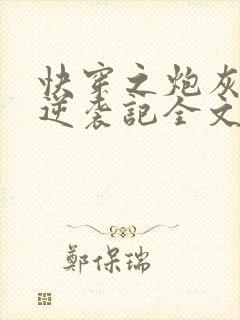 快穿之炮灰
逆袭記全文
鄭保瑞